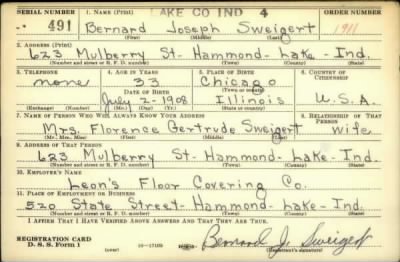 LAKE CO IND 4
SERIAL NUMBER 1. NAME (Print) ORDER NUMBER
491 Bernard Joseph Sweigert 1911
(First) (Middle) (Last)
2. ADDRESS (Print)
623 Mulberry St- Hammond- Lake- Ind.
(Number and street or R. F. D. number) (Town) (County) (State)
3. TELEPHONE 4. AGE IN YEARS 5. PLACE OF BIRTH 6. COUNTRY OF CITIZENSHIP
none 33 Chicago
DATE OF BIRTH (Town or county)
July 2-1908 Illinois U.S.A.
(Exchange) (Number) (Mo.) (Day) (Yr.) (State or country)
7. NAME OF PERSON WHO WILL ALWAYS KNOW YOUR ADDRESS 8. RELATIONSHIP OF THAT PERSON
Mrs. Florence Gertrude Sweigert wife
(Mr., Mrs., Miss) (First) (Middle) (Last)
9. ADDRESS OF THAT PERSON
623 Mulberry St- Hammond- Lake- Ind.
(Number and street or R. F. D. number) (Town) (County) (State)
10. EMPLOYER'S NAME
Leon's Floor Covering Co.
11. PLACE OF EMPLOYMENT OR BUSINESS
520 State Street- Hammond- Lake- Ind
(Number and street or R. F. D. number) (Town) (County) (State)
I AFFIRM THAT I HAVE VERIFIED ABOVE ANSWERS AND THAT THEY ARE TRUE.
REGISTRATION CARD
D. S. S. Form 1 16—17105 Bernard J. Sweigert
(Registrant's signature)